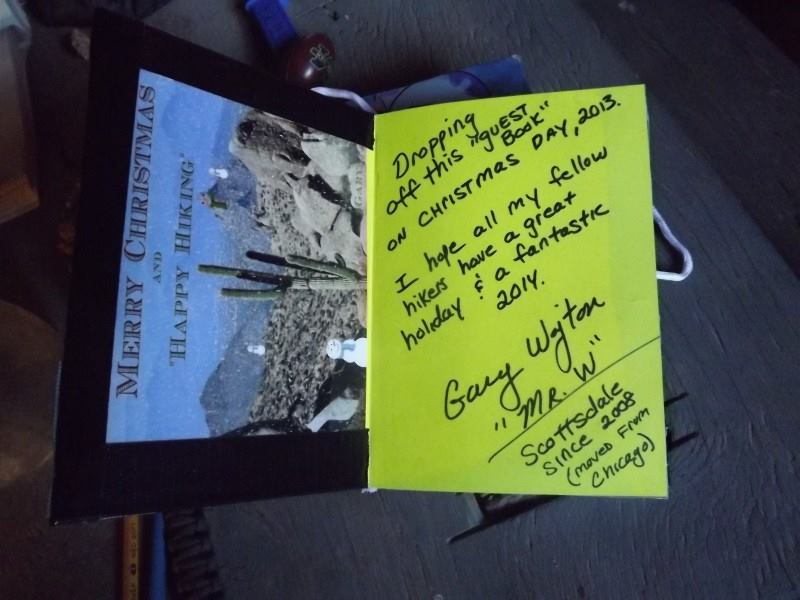 MERRY CHRISTMAS
AND
"HAPPY HIKING"
GARY
Dropping
off this "GUEST
Book"
ON CHRISTMAS DAY, 2013.
I hope all my fellow
hikers have a great
holiday & a fantastic
2014.
Gary
"MR. W"
Scottsdale
Since 2008
(moved From
Chicago)